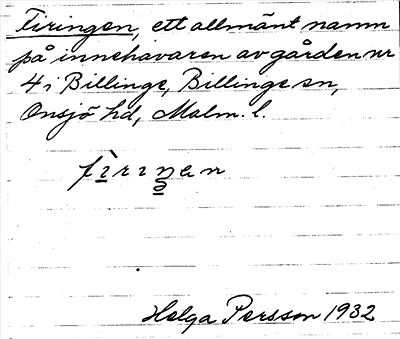 Firingen, ett allmänt namn
på innehavaren av gården nr
4 i Billinge, Billinge sn,
Onsjö hd, Malm. l.
Helga Persson 1932